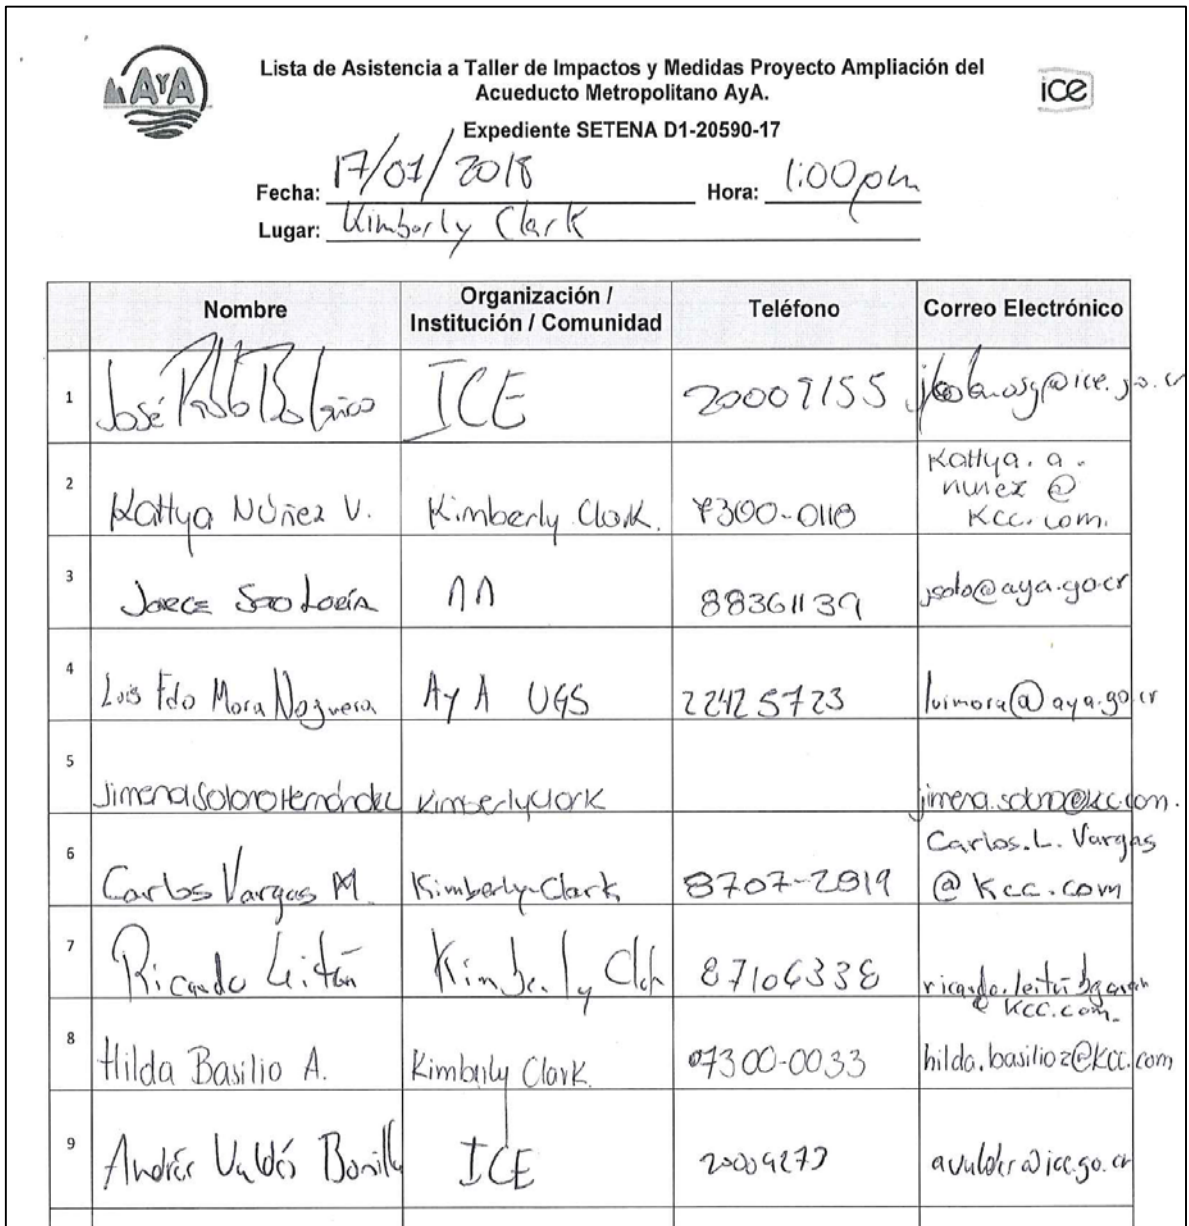 AYA
Lista de Asistencia a Taller de Impactos y Medidas Proyecto Ampliación del
Acueducto Metropolitano AyA.
ice
Expediente SETENA D1-20590-17
Fecha: 17/01/2018 Hora: 1:00pm
Lugar: Kimberly Clark
Nombre Organización / Institución / Comunidad Teléfono Correo Electrónico
1 José Pablo Bolaños ICE 20009155 @ice.go.cr
2 Kattya Núñez V. Kimberly Clark. 7300-0118 Kattya.a.
nunez@
Kcc.com.
3 Jorge Soto Loría 88361139 jsoto@aya.go.cr
4 Luis Fdo Mora Noguera AyA UGS 22425723 luimora@aya.go.cr
5 Jimena Solano Hernández Kimberly Clark jimena.solano@kcc.com.
6 Carlos Vargas M. Kimberly-Clark 8707-2819 Carlos.L.Vargas
@Kcc.com
7 Ricardo Leitón Kimberly Clark 87106338
@KCC.com.
8 Hilda Basilio A. Kimberly Clark. 7300-0033 hilda.basilio2@kcc.com
9 Andrés Valdés Bonilla ICE 20009279